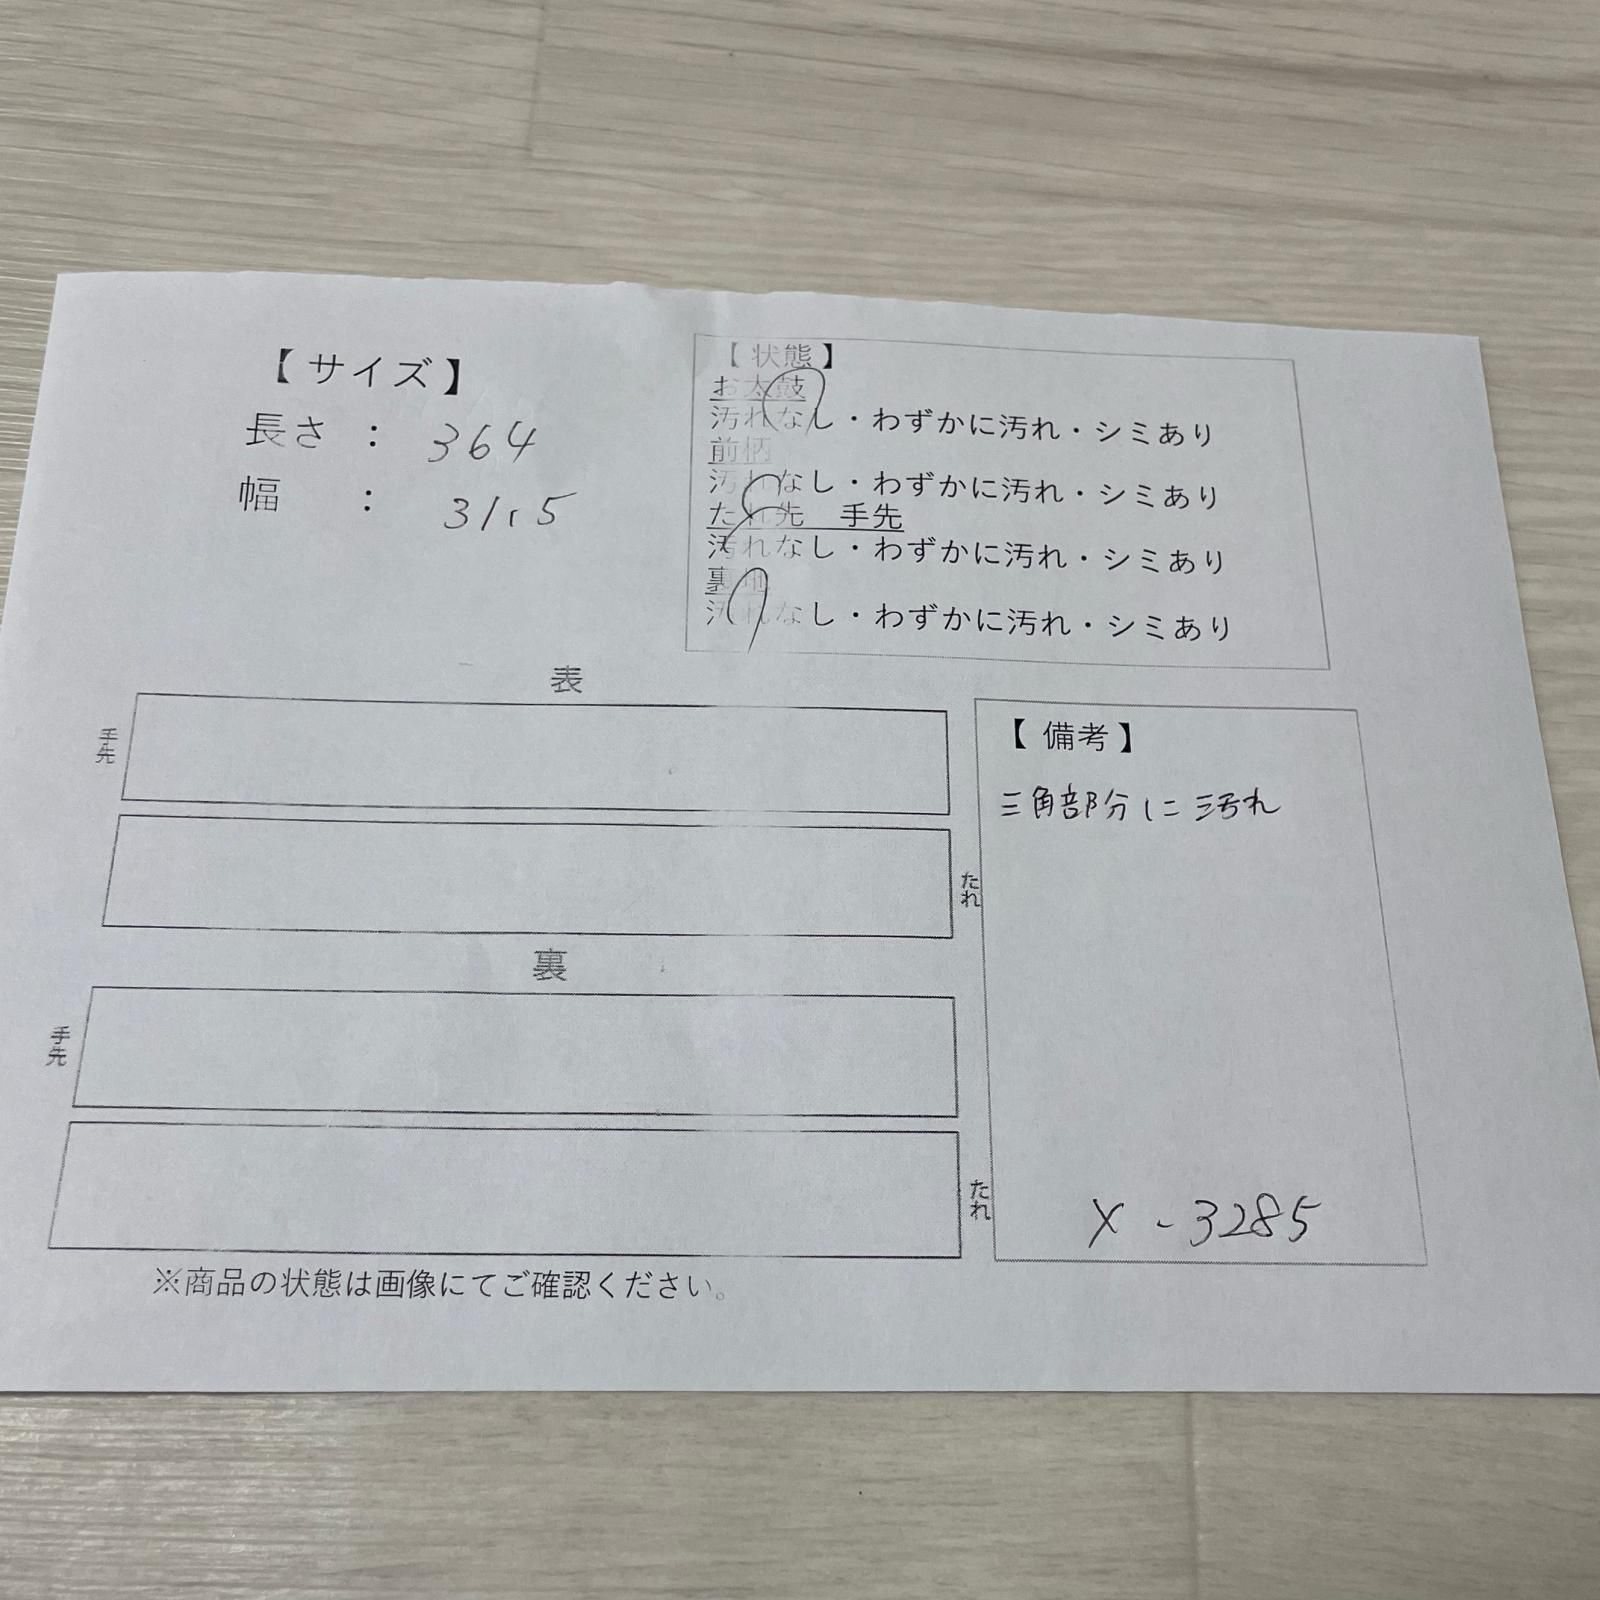 【サイズ】
長さ : 364
幅 : 31.5
【状態】
お太鼓
汚れなし・わずかに汚れ・シミあり
前柄
汚れなし・わずかに汚れ・シミあり
たれ先 手先
汚れなし・わずかに汚れ・シミあり
裏地
汚れなし・わずかに汚れ・シミあり
表
手先
たれ
裏
手先
たれ
【備考】
三角部分に汚れ
X-3285
※商品の状態は画像にてご確認ください。